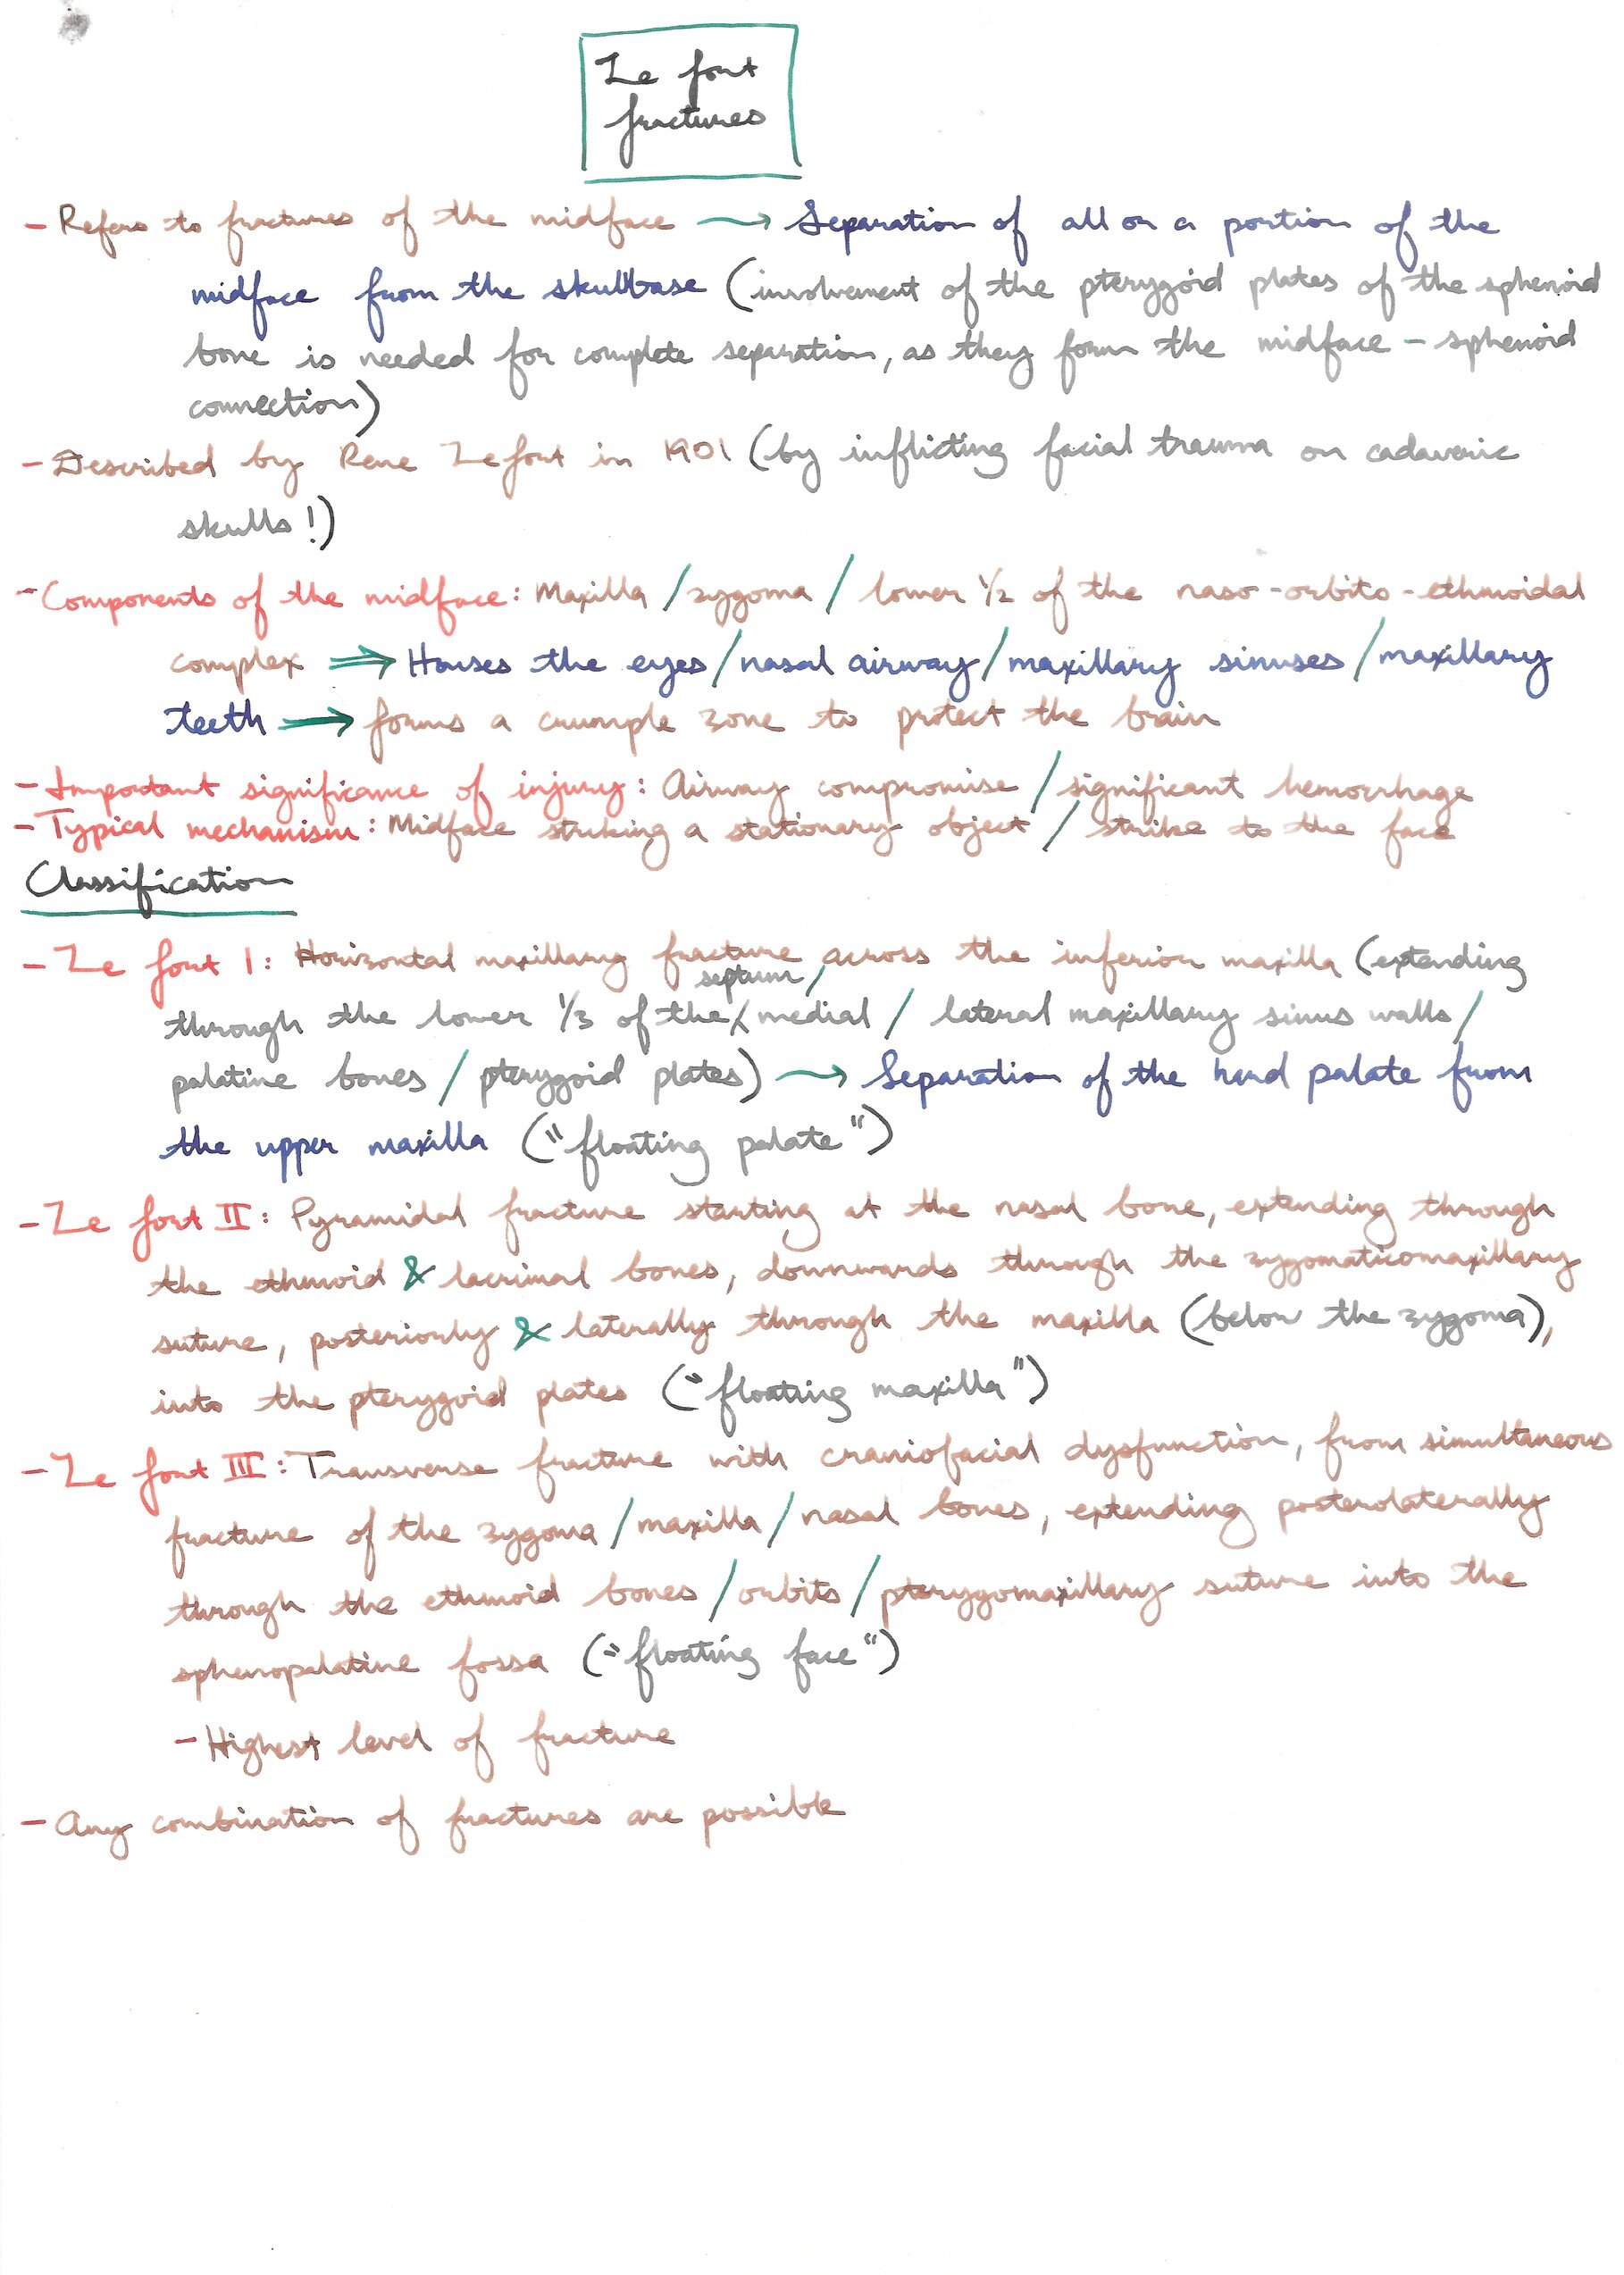 Le fort
fractures
- Refers to fractures of the midface → Separation of all or a portion of the
midface from the skullbase (involvement of the pterygoid plates of the sphenoid
bone is needed for complete separation, as they form the midface - sphenoid
connection)
- Described by Rene Lefort in 1901 (by inflicting facial trauma on cadaveric
skulls!)
- Components of the midface: Maxilla / zygoma / lower 1/2 of the naso-orbito-ethmoidal
complex ⇒ Houses the eyes / nasal airway / maxillary sinuses / maxillary
teeth → forms a crumple zone to protect the brain
- Important significance of injury: Airway compromise / significant hemorrhage
- Typical mechanism: Midface striking a stationary object / strike to the face
Classification
- Le fort I: Horizontal maxillary fracture across the inferior maxilla (extending
through the lower 1/3 of the septum / medial / lateral maxillary sinus walls /
palatine bones / pterygoid plates) → Separation of the hard palate from
the upper maxilla ("floating palate")
- Le fort II: Pyramidal fracture starting at the nasal bone, extending through
the ethmoid & lacrimal bones, downwards through the zygomaticomaxillary
suture, posteriorly & laterally through the maxilla (below the zygoma),
into the pterygoid plates ("floating maxilla")
- Le fort III: Transverse fracture with craniofacial dysfunction, from simultaneous
fracture of the zygoma / maxilla / nasal bones, extending posterolaterally
through the ethmoid bones / orbits / pterygomaxillary suture into the
sphenopalatine fossa ("floating face")
- Highest level of fracture
- Any combination of fractures are possible